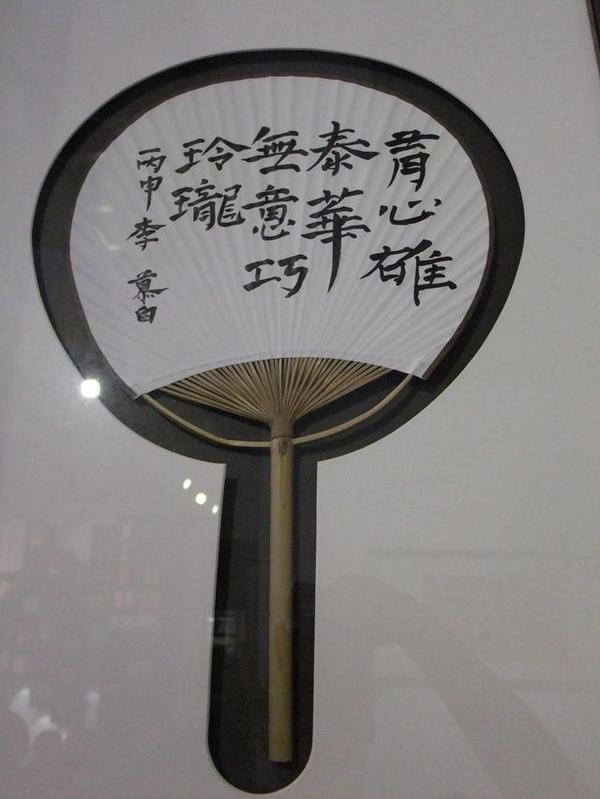 有心雄
泰華
無意巧
玲瓏
丙申 李慕白